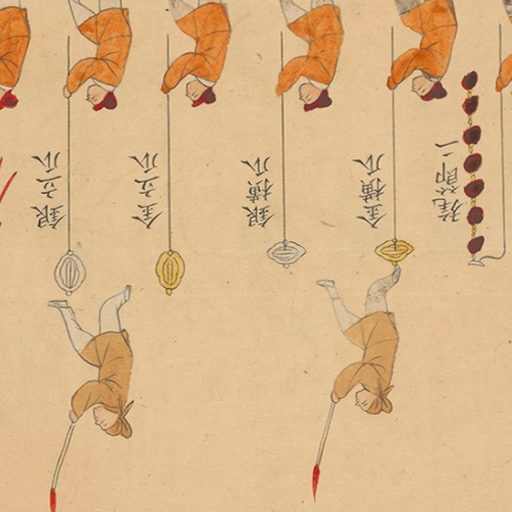 銀立瓜
金立瓜
銀橫瓜
金橫瓜
旄節二